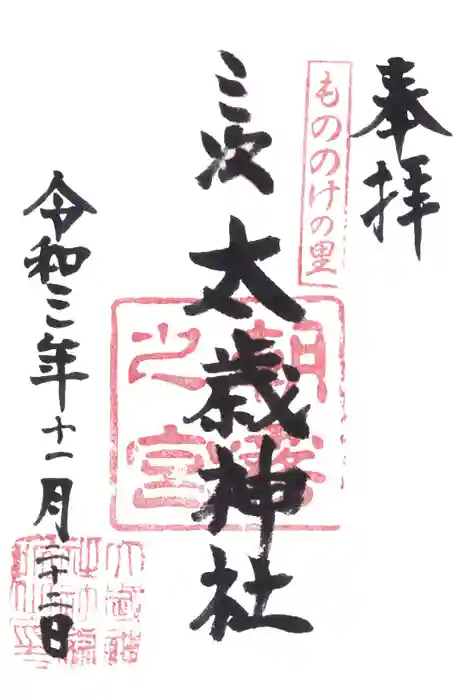 奉拝
もののけの里
三次
太歳神社
令和三年十一月二十二日